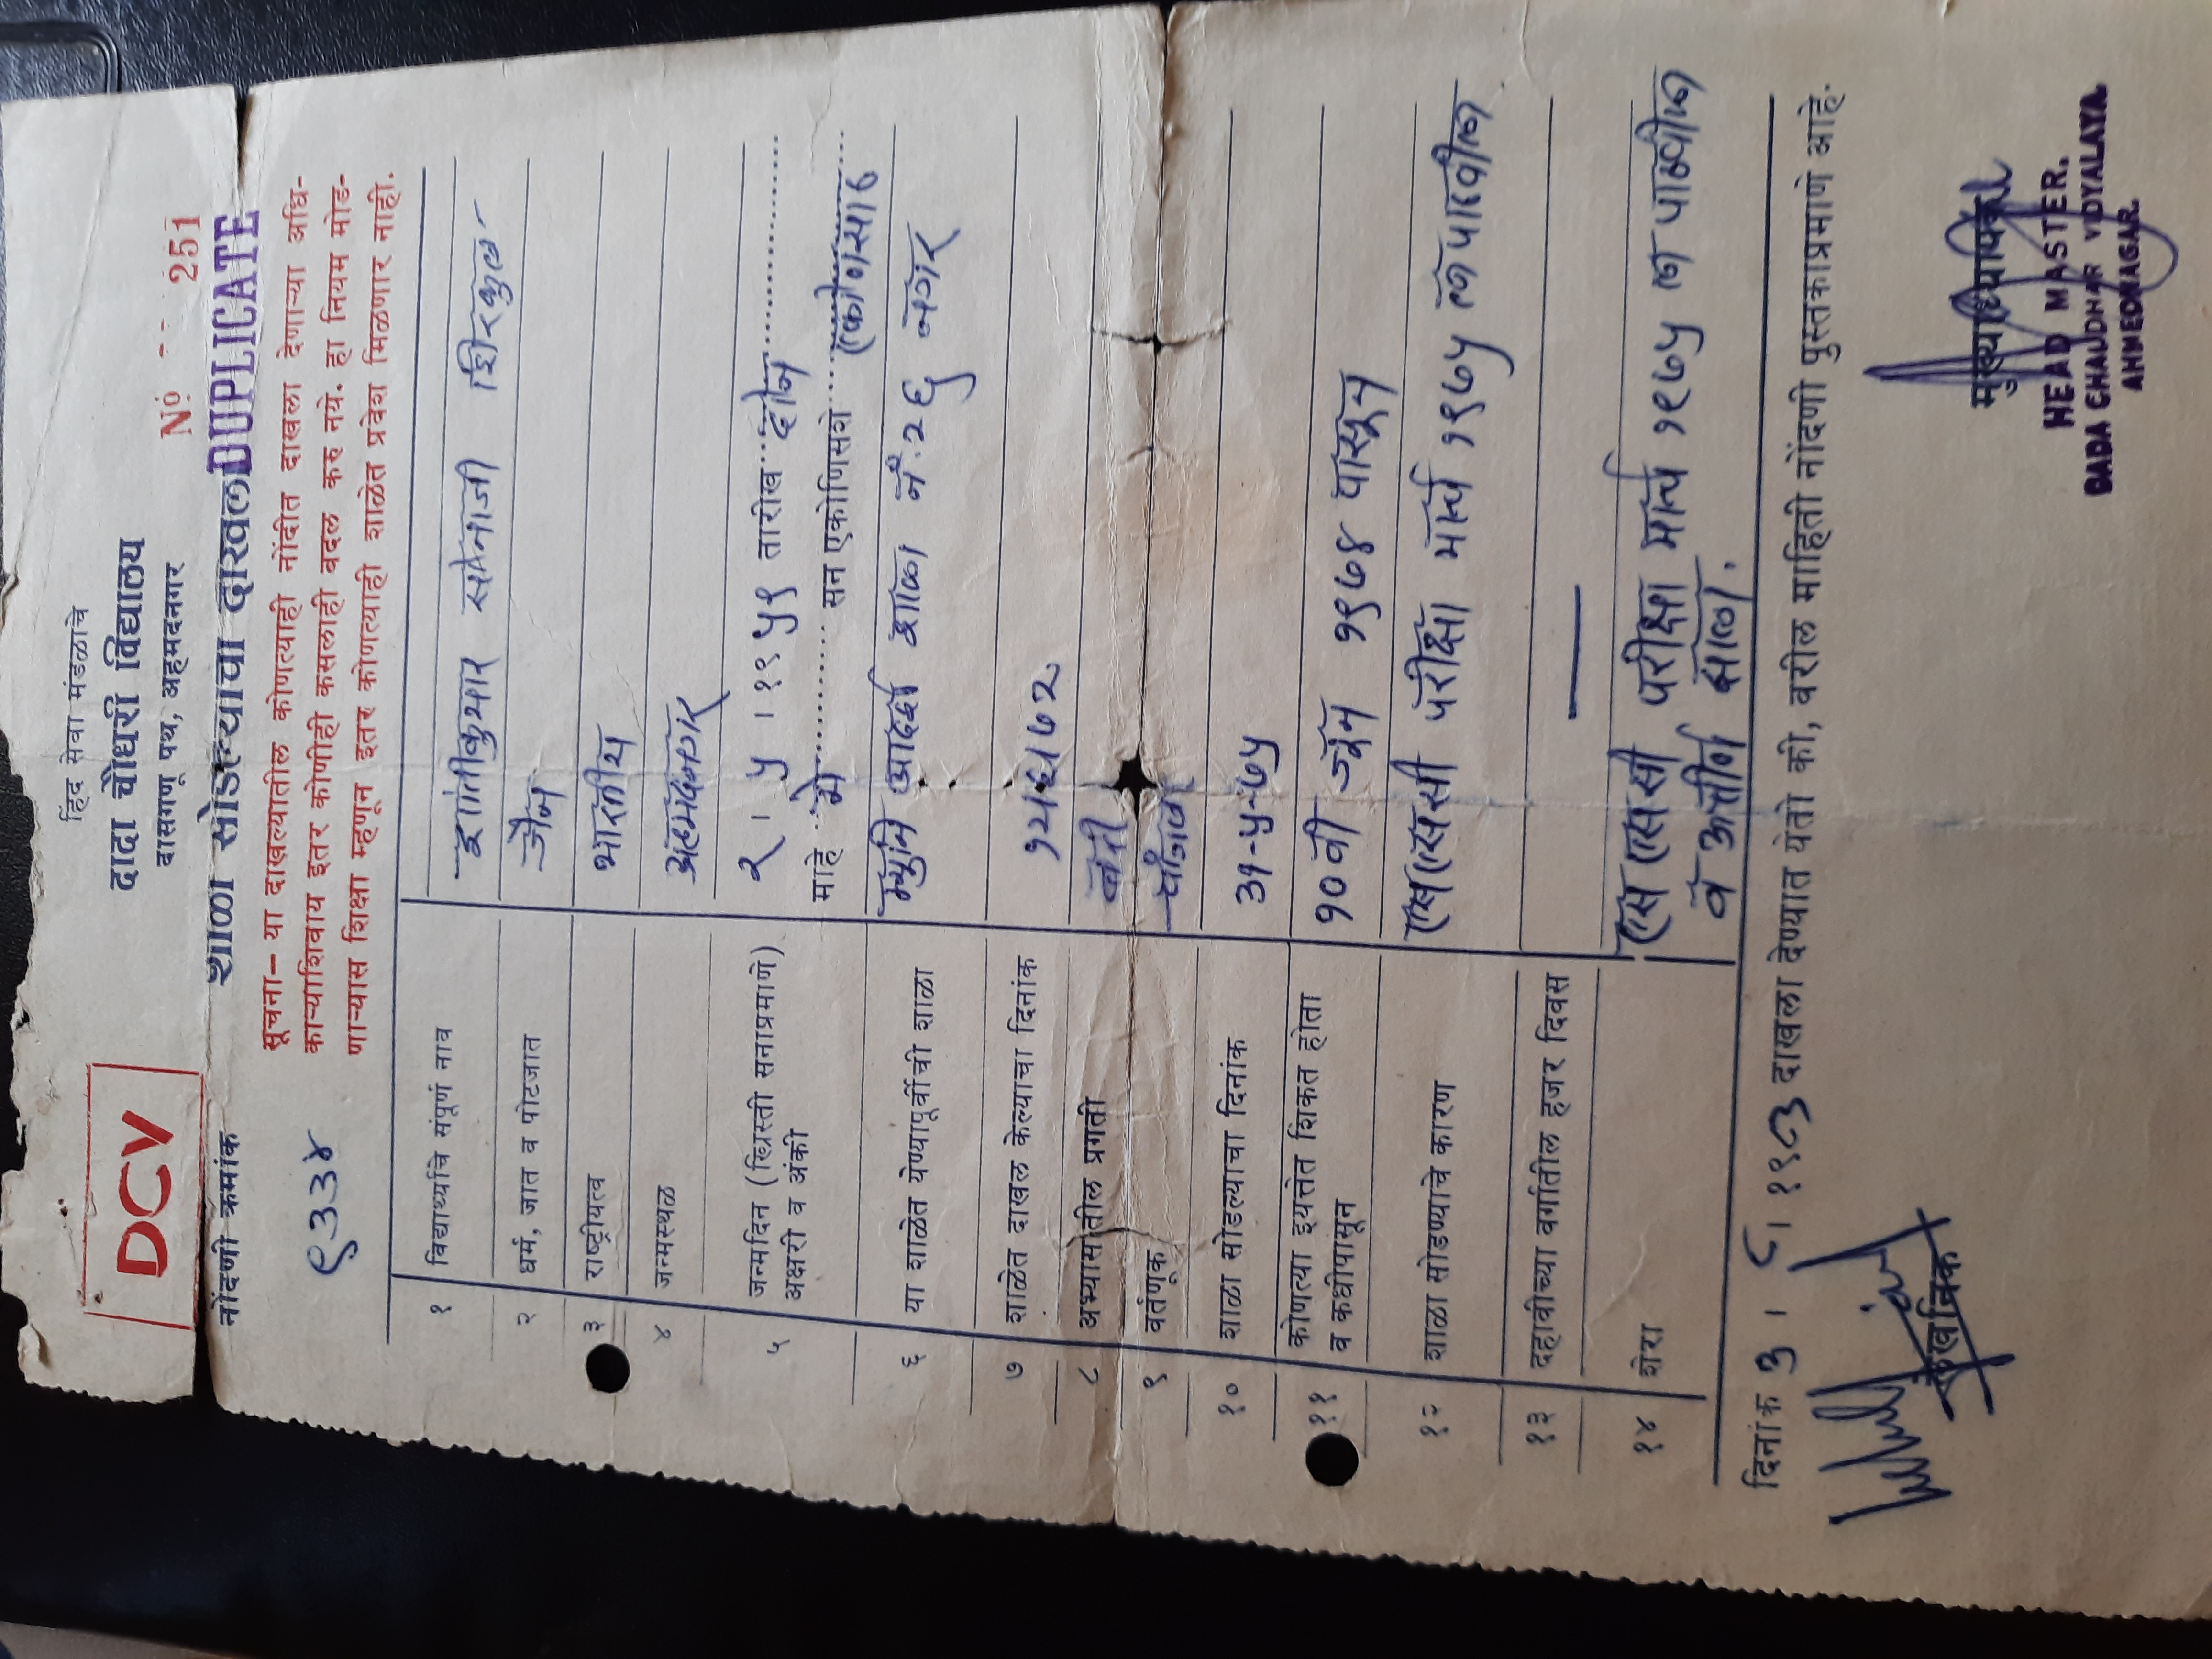 हिंद सेवा मंडळाचे
दादा चौधरी विद्यालय
दासगणु पथ, अहमदनगर
DCV
Nº 251
नोंदणी क्रमांक
शाळा सोडल्याचा दाखला
DUPLICATE
९३३४
सूचना- या दाखल्यातील कोणत्याही नोंदीत दाखला देणाऱ्या अधि-
काऱ्याशिवाय इतर कोणीही कसलाही बदल करु नये. हा नियम मोड-
णाऱ्यास शिक्षा म्हणून इतर कोणत्याही शाळेत प्रवेश मिळणार नाही.
१ विद्यार्थ्याचे संपूर्ण नाव शांतीकुमार सोनाजी शिरकुल
२ धर्म, जात व पोटजात जैन
३ राष्ट्रीयत्व भारतीय
४ जन्मस्थळ अहमदनगर
५ जन्मदिन (ख्रिस्ती सनाप्रमाणे) २। ५ । १९ ५९ तारीख दोन
अक्षरी व अंकी माहे मे सन एकोणिसशे एकोणसाठ
६ या शाळेत येण्यापूर्वीची शाळा म्युनि आदर्श शाळा नं. २६ नगर
७ शाळेत दाखल केल्याचा दिनांक १२।६।७२
८ अभ्यासातील प्रगती बरी
९ वर्तणुक चांगली
१० शाळा सोडल्याचा दिनांक ३१-५-७५
११ कोणत्या इयत्तेत शिकत होता १०वी जून १९७४ पासून
व कधीपासून
१२ शाळा सोडण्याचे कारण एस एस सी परीक्षा मार्च १९७५
१३ दहावीच्या वर्गातील हजर दिवस —
१४ शेरा एस एस सी परीक्षा मार्च १९७५
व उत्तीर्ण झाला.
दिनांक दाखला देण्यात येतो की, वरील माहिती नोंदणी पुस्तकाप्रमाणे आहे.
लेखनिक
मुख्याध्यापक
HEAD MASTER.
DADA CHAUDHARI VIDYALAYA
AHMEDNAGAR.